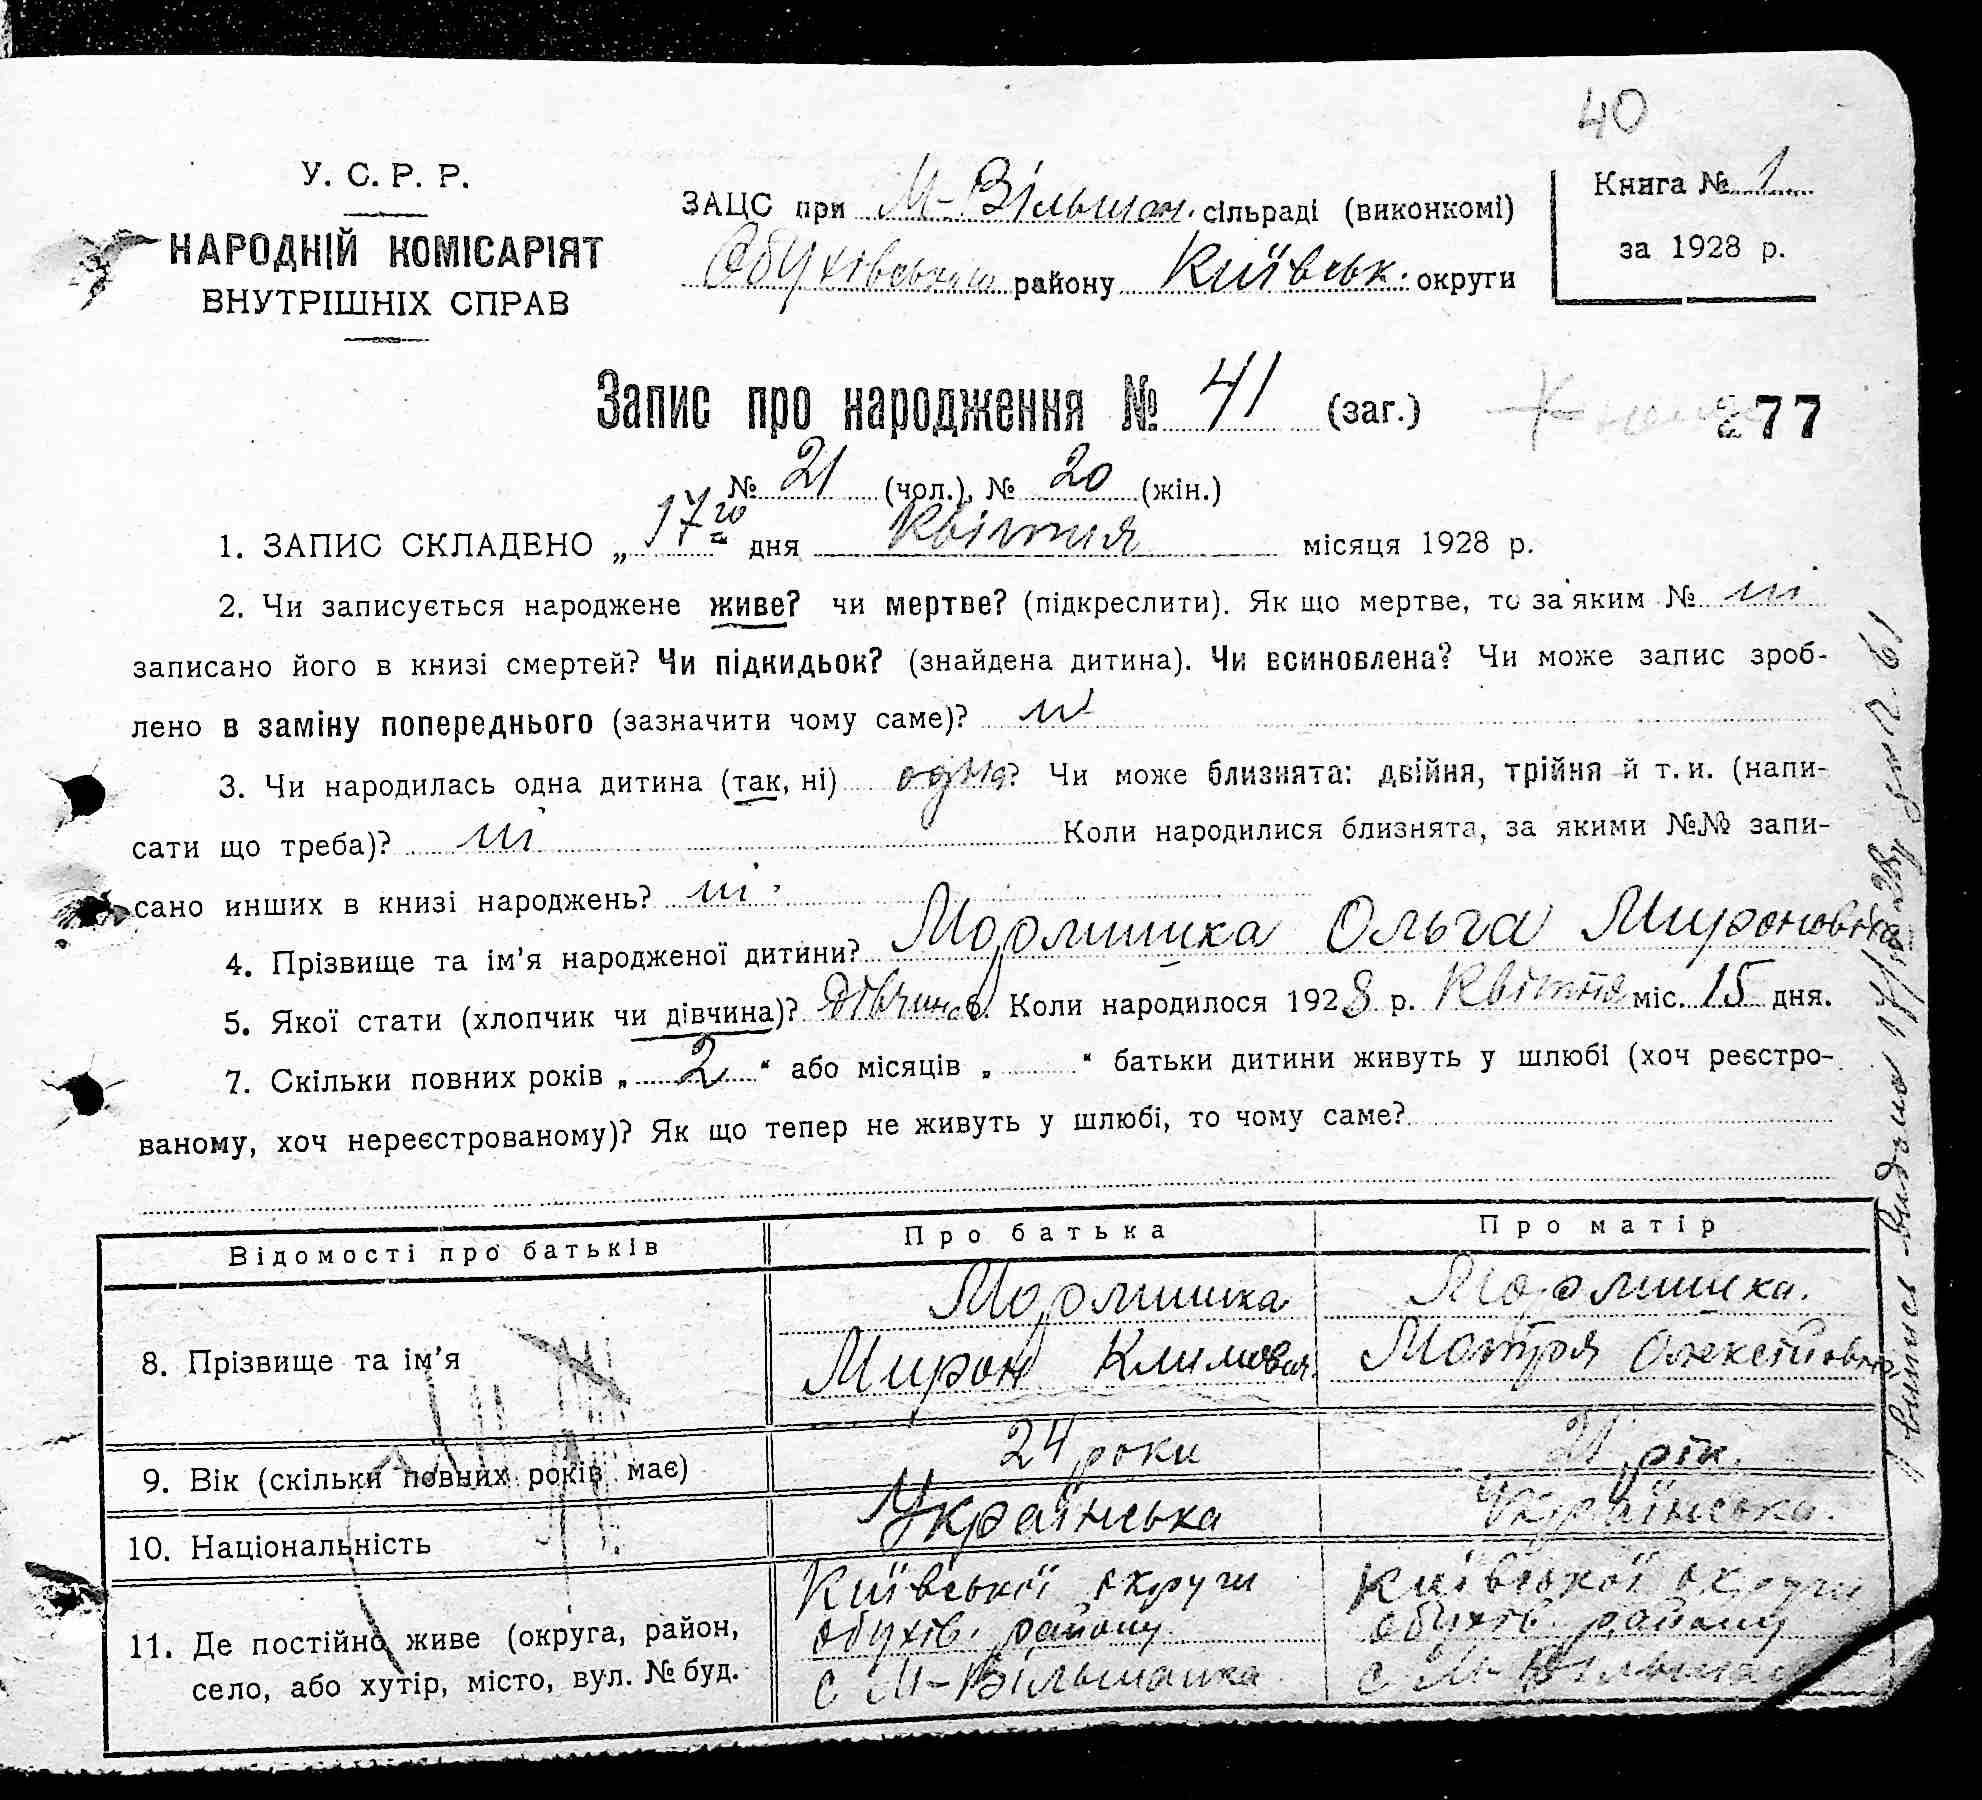 40
У. С. Р. Р.
НАРОДНІЙ КОМІСАРІЯТ
ВНУТРІШНІХ СПРАВ
ЗАЦС при М-Вільшан. сільраді (виконкомі)
Обухівського району Київськ. округи
Книга № 1
за 1928 р.
Запис про народження № 41 (заг.)
277
№ 21 (чол.), № 20 (жін.)
1. ЗАПИС СКЛАДЕНО „ 17го “ дня квітня місяця 1928 р.
2. Чи записується народжене живе? чи мертве? (підкреслити). Як що мертве, то за яким № ні
записано його в книзі смертей? Чи підкидьок? (знайдена дитина). Чи всиновлена? Чи може запис зроб-
лено в заміну попереднього (зазначити чому саме)? ні
3. Чи народилась одна дитина (так, ні) одна? Чи може близнята: двійня, трійня й т. и. (напи-
сати що треба)? ні Коли народилися близнята, за якими №№ запи-
сано инших в книзі народжень? ні.
4. Прізвище та ім’я народженої дитини? Ольга Мироновна
5. Якої стати (хлопчик чи дівчина)? дівчина. Коли народилося 1928 р. квітня міс. 15 дня.
7. Скільки повних років „ 2 “ або місяців „ “ батьки дитини живуть у шлюбі (хоч реєстро-
ваному, хоч нереєстрованому)? Як що тепер не живуть у шлюбі, то чому саме?
Відомості про батьків Про батька Про матір
8. Прізвище та ім’я
Мирон Климов. Мотря Олексіївна
9. Вік (скільки повних років має) 24 роки 21 рік.
10. Національність Українська Українська.
11. Де постійно живе (округа, район,
село, або хутір, місто, вул. № буд.
Київської округи Київської округи
Обухів. району Обухів. району
с М-Вільшанка с М-Вільшан
Випись видано